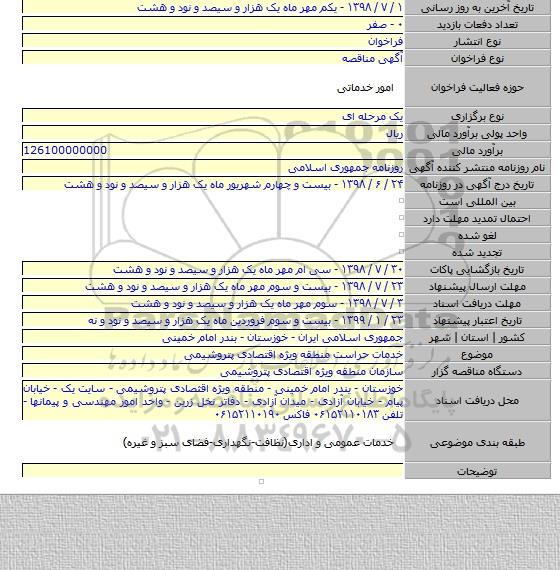 تاریخ آخرین به روز رسانی ۱ / ۷ / ۱۳۹۸ - یکم مهر ماه یک هزار و سیصد و نود و هشت
تعداد دفعات بازدید ۰ - صفر
نوع انتشار فراخوان
نوع فراخوان آگهی مناقصه
حوزه فعالیت فراخوان امور خدماتی
نوع برگزاری یک مرحله ای
واحد پولی برآورد مالی ریال
برآورد مالی 126100000000
نام روزنامه منتشر کننده آگهی روزنامه جمهوری اسلامی
تاریخ درج آگهی در روزنامه ۲۴ / ۶ / ۱۳۹۸ - بیست و چهارم شهریور ماه یک هزار و سیصد و نود و هشت
بین المللی است
احتمال تمدید مهلت دارد
لغو شده
تجدید شده
تاریخ بازگشایی پاکات ۳۰ / ۷ / ۱۳۹۸ - سی ام مهر ماه یک هزار و سیصد و نود و هشت
مهلت ارسال پیشنهاد ۲۳ / ۷ / ۱۳۹۸ - بیست و سوم مهر ماه یک هزار و سیصد و نود و هشت
مهلت دریافت اسناد ۳ / ۷ / ۱۳۹۸ - سوم مهر ماه یک هزار و سیصد و نود و هشت
تاریخ اعتبار پیشنهاد ۲۳ / ۱ / ۱۳۹۹ - بیست و سوم فروردین ماه یک هزار و سیصد و نود و نه
کشور | استان | شهر جمهوری اسلامی ایران - خوزستان - بندر امام خمینی
موضوع خدمات حراست منطقه ویژه اقتصادی پتروشیمی
دستگاه مناقصه گزار سازمان منطقه ویژه اقتصادی پتروشیمی
محل دریافت اسناد خوزستان - بندر امام خمینی - منطقه ویژه اقتصادی پتروشیمی - سایت یک - خیابان
پیام - خیابان آزادی - میدان آزادی - دفاتر نخل زرین - واحد امور مهندسی و پیمانها -
تلفن ۰۶۱۵۲۱۱۰۱۸۳ فاکس ۰۶۱۵۲۱۱۰۱۹۰
طبقه بندی موضوعی خدمات عمومی و اداری(نظافت-نگهداری-فضای سبز و غیره)
توضیحات
۰۲۱-۸۸۳۴۹۶۷۰-۵